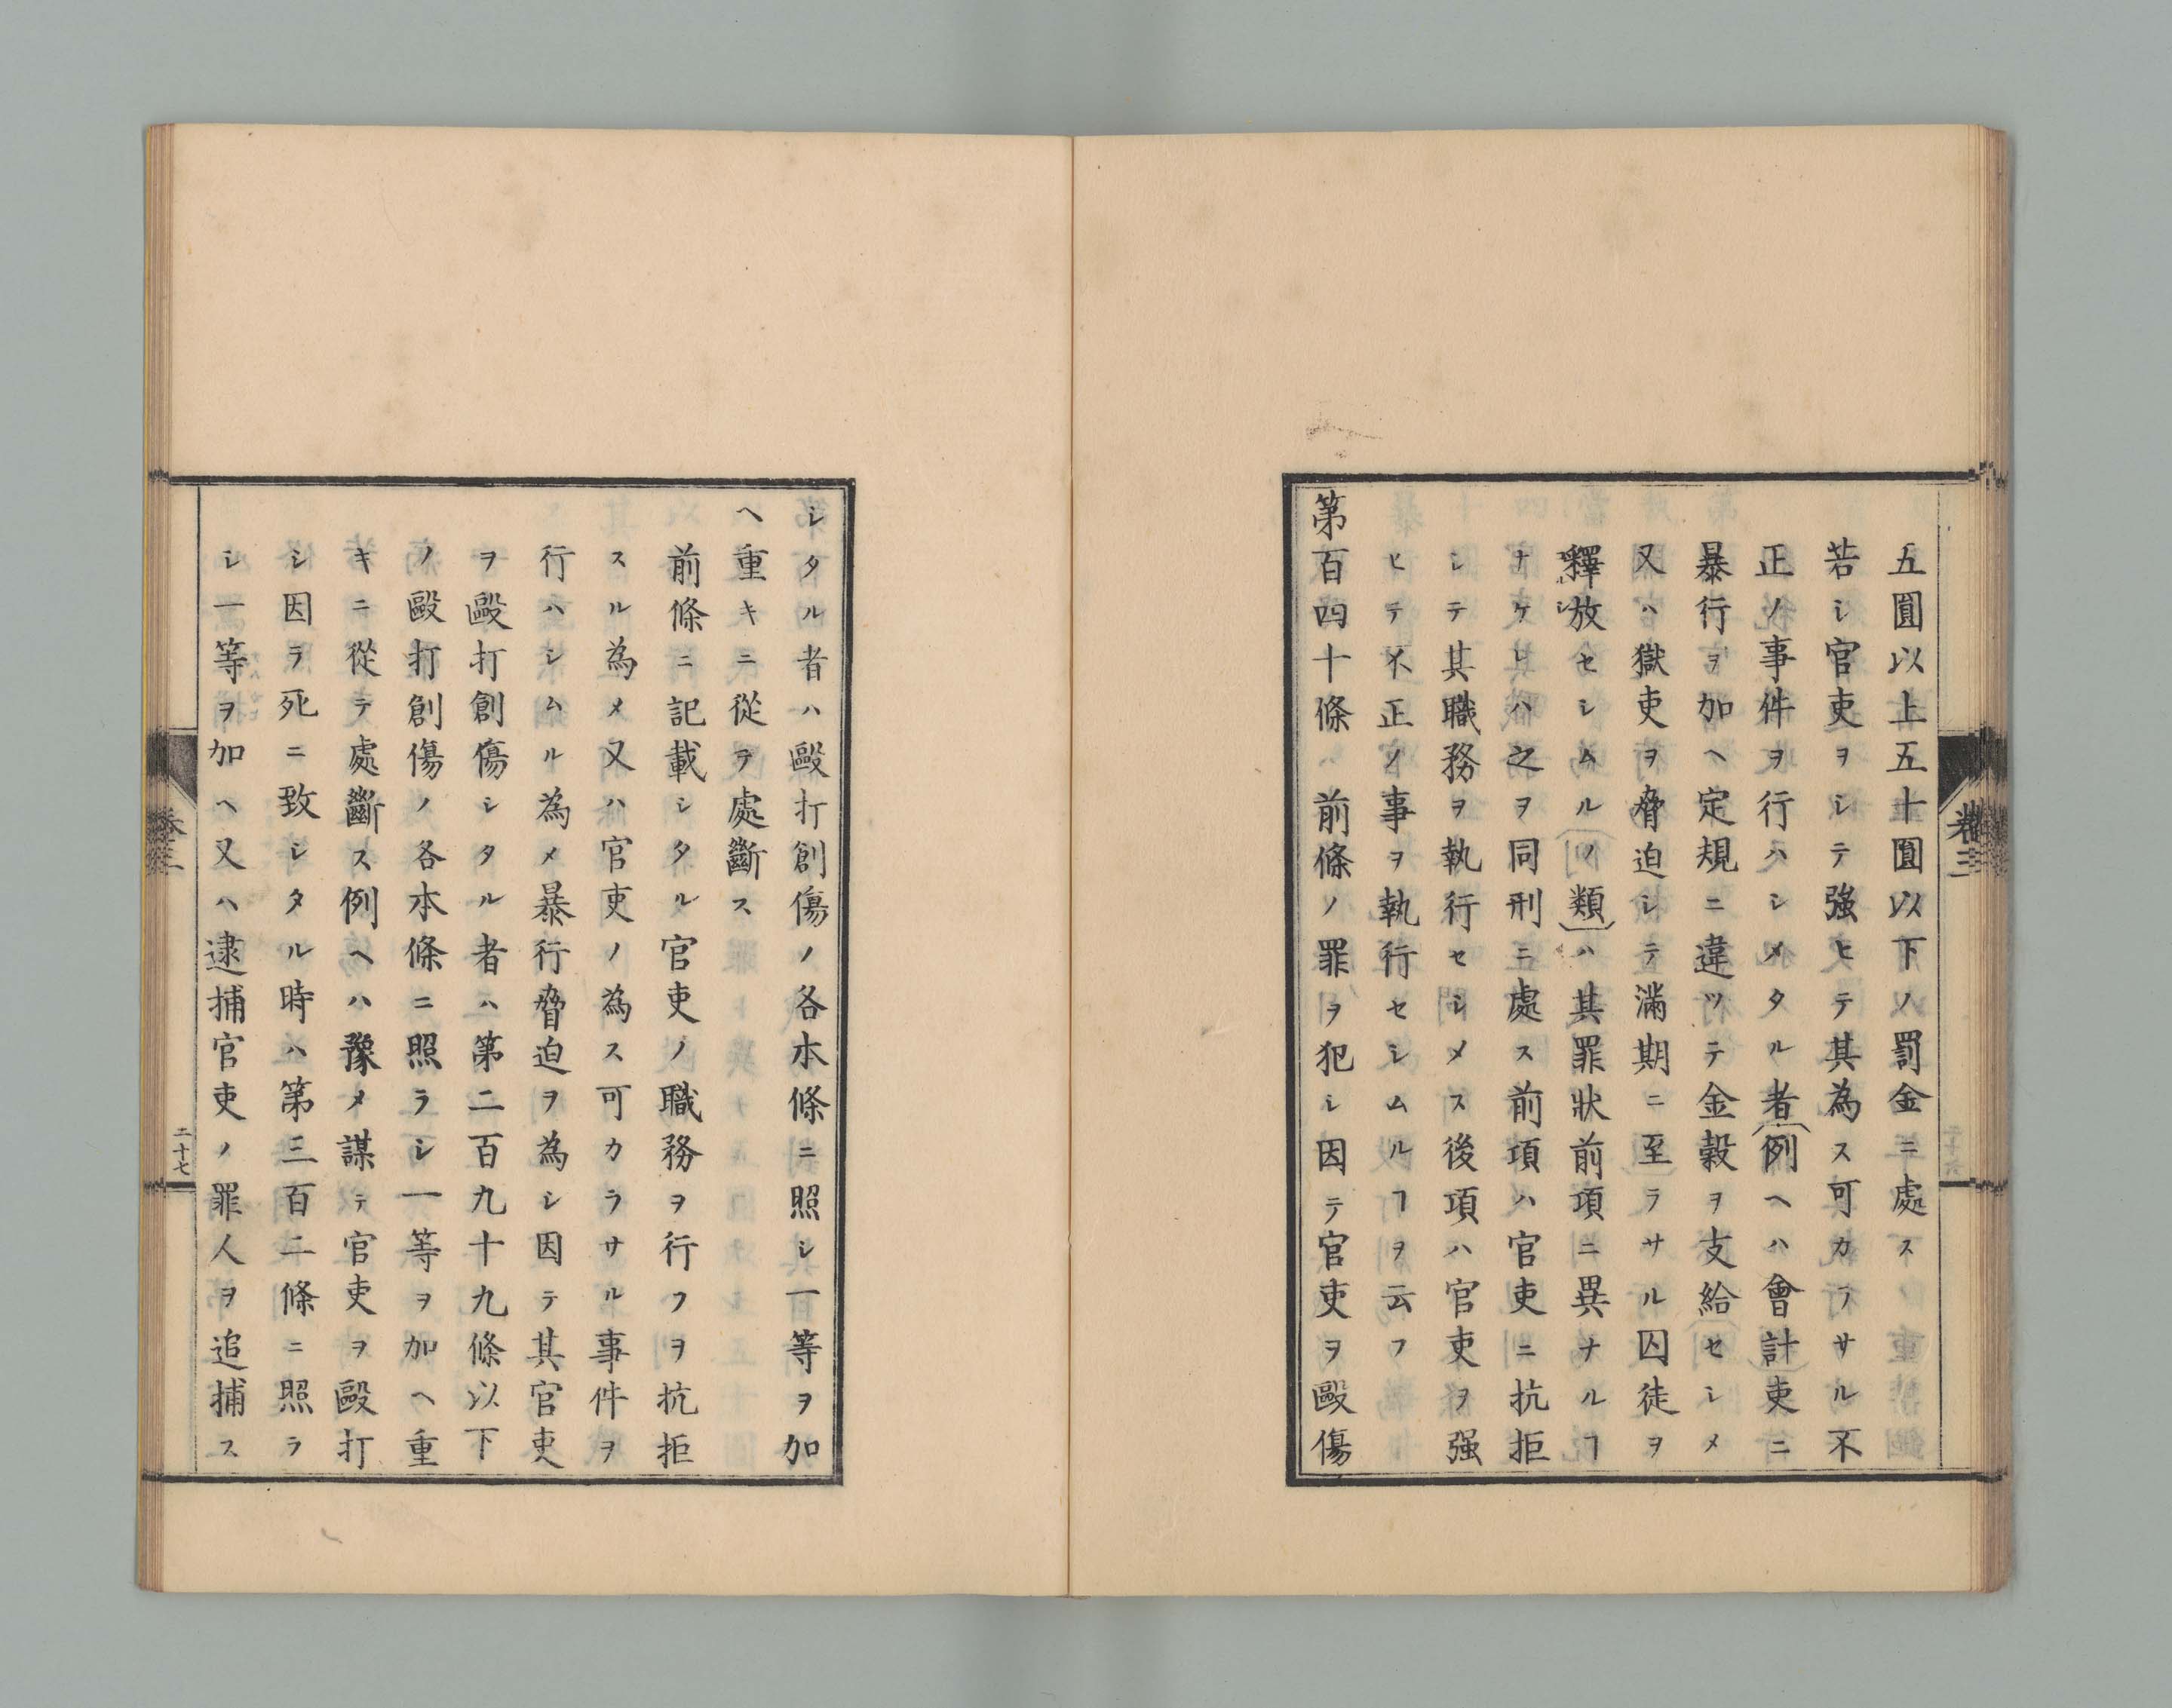 五圓以上五十圓以下ノ罰金ニ處ス
若シ官吏ヲシテ強ヒテ其為ス可カラサル不
正ノ事件ヲ行ハシメタル者(例ヘハ會計吏ニ
暴行ヲ加ヘ定規ニ違ツテ金穀ヲ支給セシメ
又ハ獄吏ヲ脅迫シテ滿期ニ至ラサル囚徒ヲ
釋放セシムルノ類)ハ其罪狀前項ニ異ナルヿ
ナケレハ之ヲ同刑ニ處ス前項ハ官吏ニ抗拒
シテ其職務ヲ執行セシメス後項ハ官吏ヲ强
ヒテ不正ノ事ヲ執行セシムルヿヲ云フ
第百四十條ハ前條ノ罪ヲ犯シ因テ官吏ヲ毆傷
卷三
シタル者ハ毆打創傷ノ各本條ニ照シ一等ヲ加
ヘ重キニ從テ處斷ス
前條ニ記載シタル官吏ノ職務ヲ行フヲ抗拒
スル為メ又ハ官吏ノ為ス可カラサル事件ヲ
行ハシムル為メ暴行脅迫ヲ為シ因テ其官吏
ヲ毆打創傷シタル者ハ第二百九十九條以下
ノ毆打創傷ノ各本條ニ照ラシ一等ヲ加ヘ重
キニ從ラ處斷ス例ヘハ豫メ謀テ官吏ヲ毆打
シ因ラ死ニ致シタル時ハ第三百二條ニ照ラ
シ一等ヲ加ヘ又ハ逮捕官吏ノ罪人ヲ追捕ス
二十七